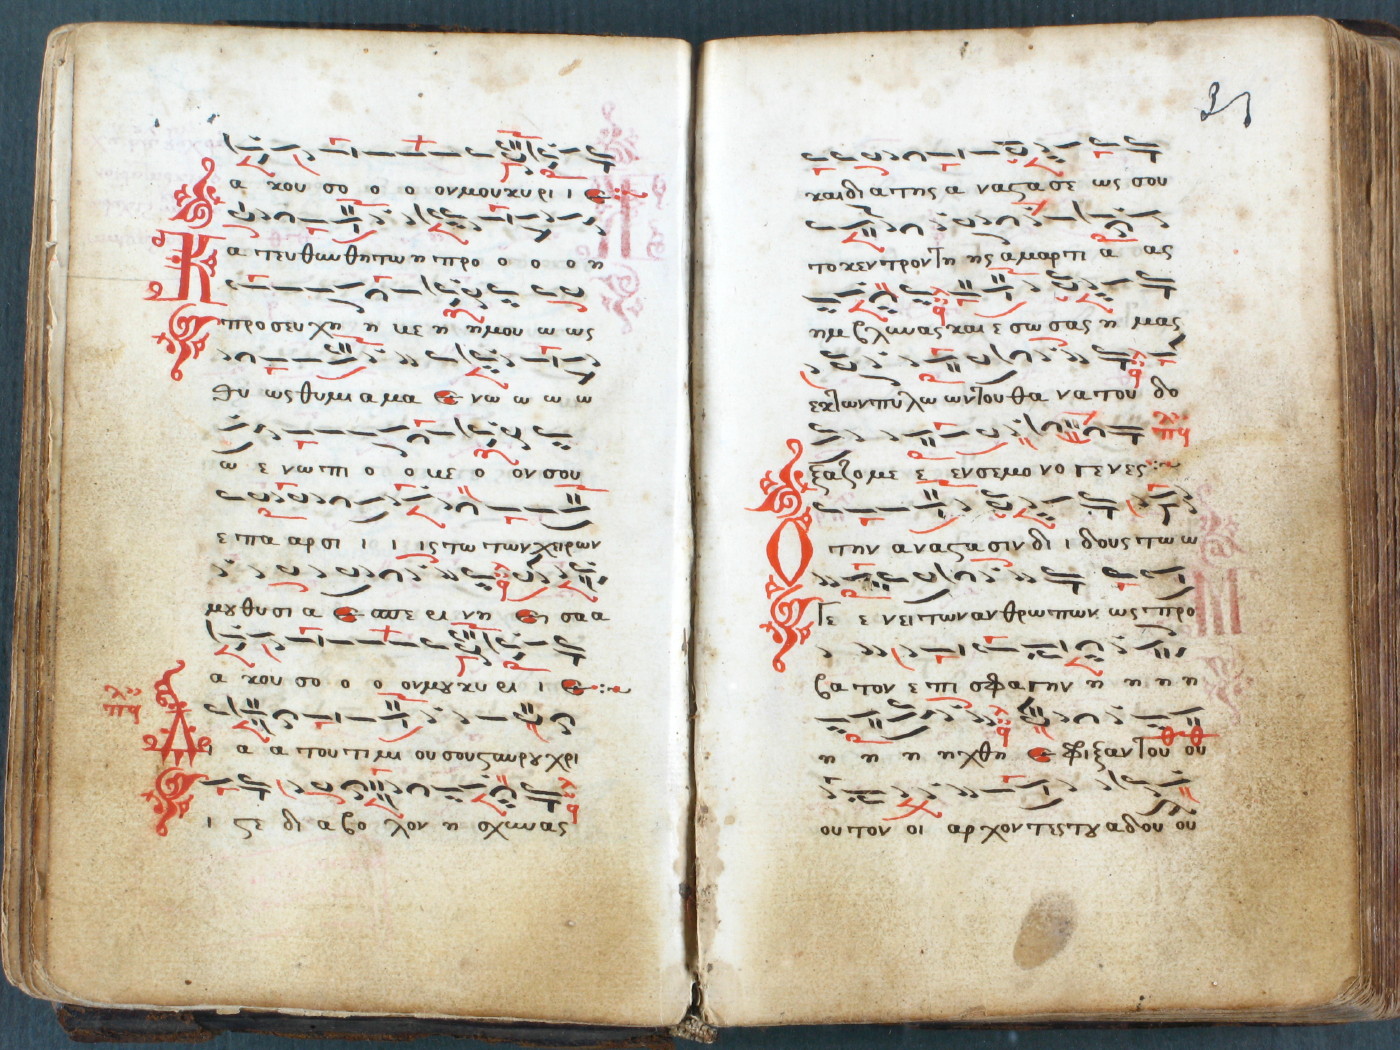 α κου σο ο ο ονμουκυρι ι
Κ α τευ θυν θητω η προ ο ο ο η
προσευ χη η με η ημου ω ως
θυ ωςθυμι α μα ε νω ω ω ω
ω ε νωπι ο ο με ο ον σου
ε πα αρσι ι ι ιςτω τωνχειρων
μȣθυσι α ε σπε ρι νη η σαα
α κου σο ο ο ονμȣκυ ρι ι
Δ ι α α του τι μι ου σουϛαυρȣ χρι
ι ϛε δι αβο λον η σχυνας
καιδι α της α να ϛασε ως σου
το κεντρον τη ης αμαρτι α ας
ημ βλυνας και ε σω σας η μας
εκ των πυ λω ων του θα να του δο
ξαζομε ε ενσεμο νο γενες
Ο την αναϛασιν δι ι δους τω ω
γε ε νει των αν θρωπων ως προ
βα τον ε πι σφαγην η η η η
η η η ηχθη ε φριξαν του ου
ουτον οι αρ χον τεςτȣ αδου ου